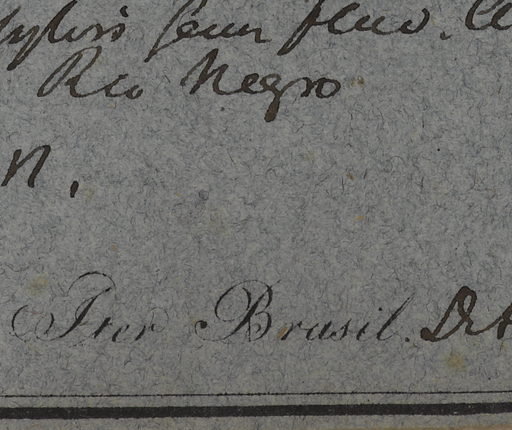 sylvis secus fluv.
Rio Negro
n.
Iter Brasil.